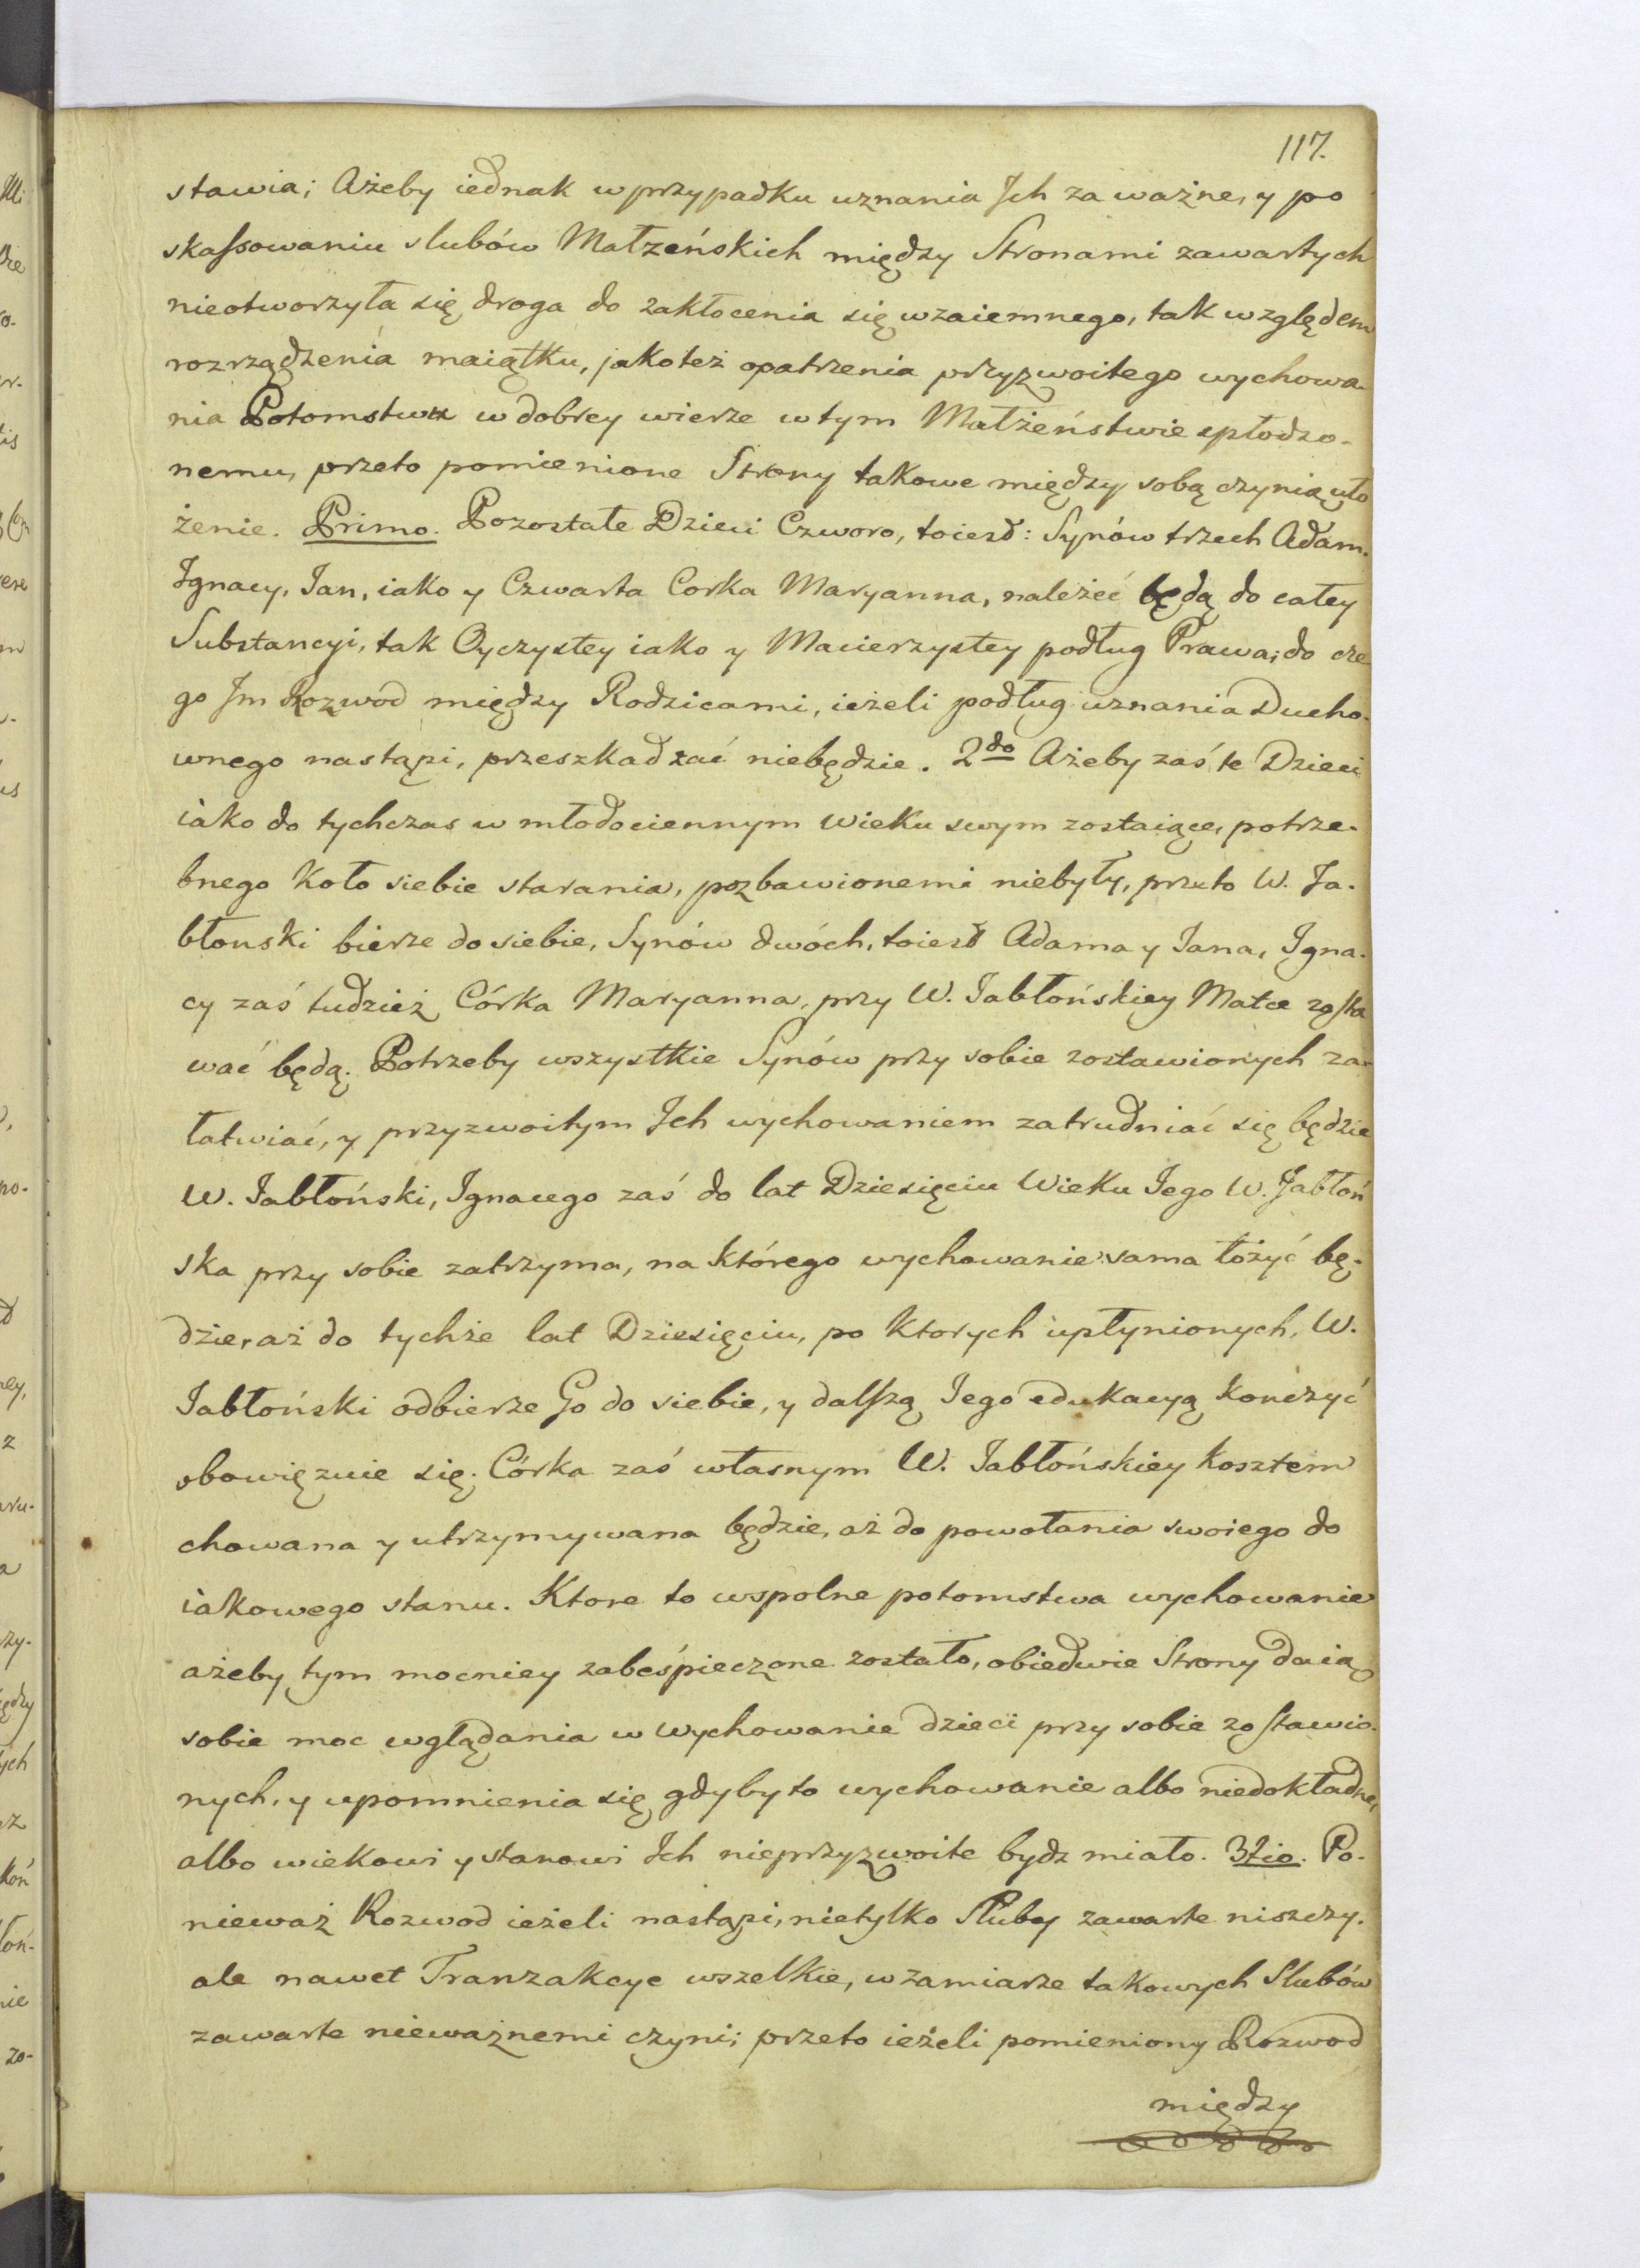 117.
stawia; Ażeby iednak w przypadku uznania Ich za ważne, y po
skassowaniu slubów Małzeńskich między Stronami zawartych
nieotworzyła się droga do zakłocenia się wzaiemnego, tak względem
rozrządzenia maiątku, jakoteż opatrzenia przyzwoitego wychowa-
nia Potomstwu w dobrey wierze w tym Małżeństwie spłodzo-
nemu, przeto pomienione Strony takowe między sobą czynią uło
żenie. Primo. Pozostałe Dzieci Czworo, toiest: Synów trzech Adam.
Ignacy, Ian, iako y Czwarta Corka Maryanna, należeć będą do całey
Substancyi, tak Oyczystey iako y Macierzystey podług Prawa; do cze
go Im Rozwod między Rodzicami, ieżeli podług uznania Ducho-
wnego nastąpi, przeszkadzać niebędzie. 2do Ażeby zaś te Dzieci
iako do tychczas w młodociennym wieku swym zostaiące, potrze-
bnego koło siebie starania, pozbawionemi niebyły, przeto W. Ja-
błonski bierze do siebie, Synów dwóch, toiest Adama y Iana, Igna-
cy zaś tudzież Córka Maryanna, przy W. Iabłońskiey Matce zosta
wać będą. Potrzeby wszystkie Synów przy sobie zostawionych za-
łatwiać, y przyzwoitym Ich wychowaniem zatrudniać się będzie
W. Iabłoński, Ignacego zaś do lat Dziesięciu Wieku Iego W. Jabłoń
ska przy sobie zatrzyma, na którego wychowanie sama łożyć bę-
dzie, aż do tychże lat Dziesięciu, po ktorych upłynionych, W.
Iabłoński odbierze Go do siebie, y dalszą Iego edukacyą konczyć
obowięzuie się. Córka zaś własnym W. Iabłońskiey kosztem
chowana y utrzymywana będzie, aż do powołania swoiego do
iakowego stanu. Ktore to wspolne potomstwa wychowanie
ażeby tym mocniey zabeśpieczone zostało, obiedwie Strony daią
sobie moc wglądania w wychowanie dzieci przy sobie zostawio-
nych, y upomnienia się gdyby to wychowanie albo niedokładne,
albo wiekowi y stanowi Ich nieprzyzwoite bydz miało. 3tio. Po-
nieważ Rozwod ieżeli nastąpi, nietylko Sluby zawarte niszczy.
ale nawet Tranzakcye wszelkie, w zamiarze takowych Slubów
zawarte nieważnemi czyni; przeto ieżeli pomieniony Rozwod
między